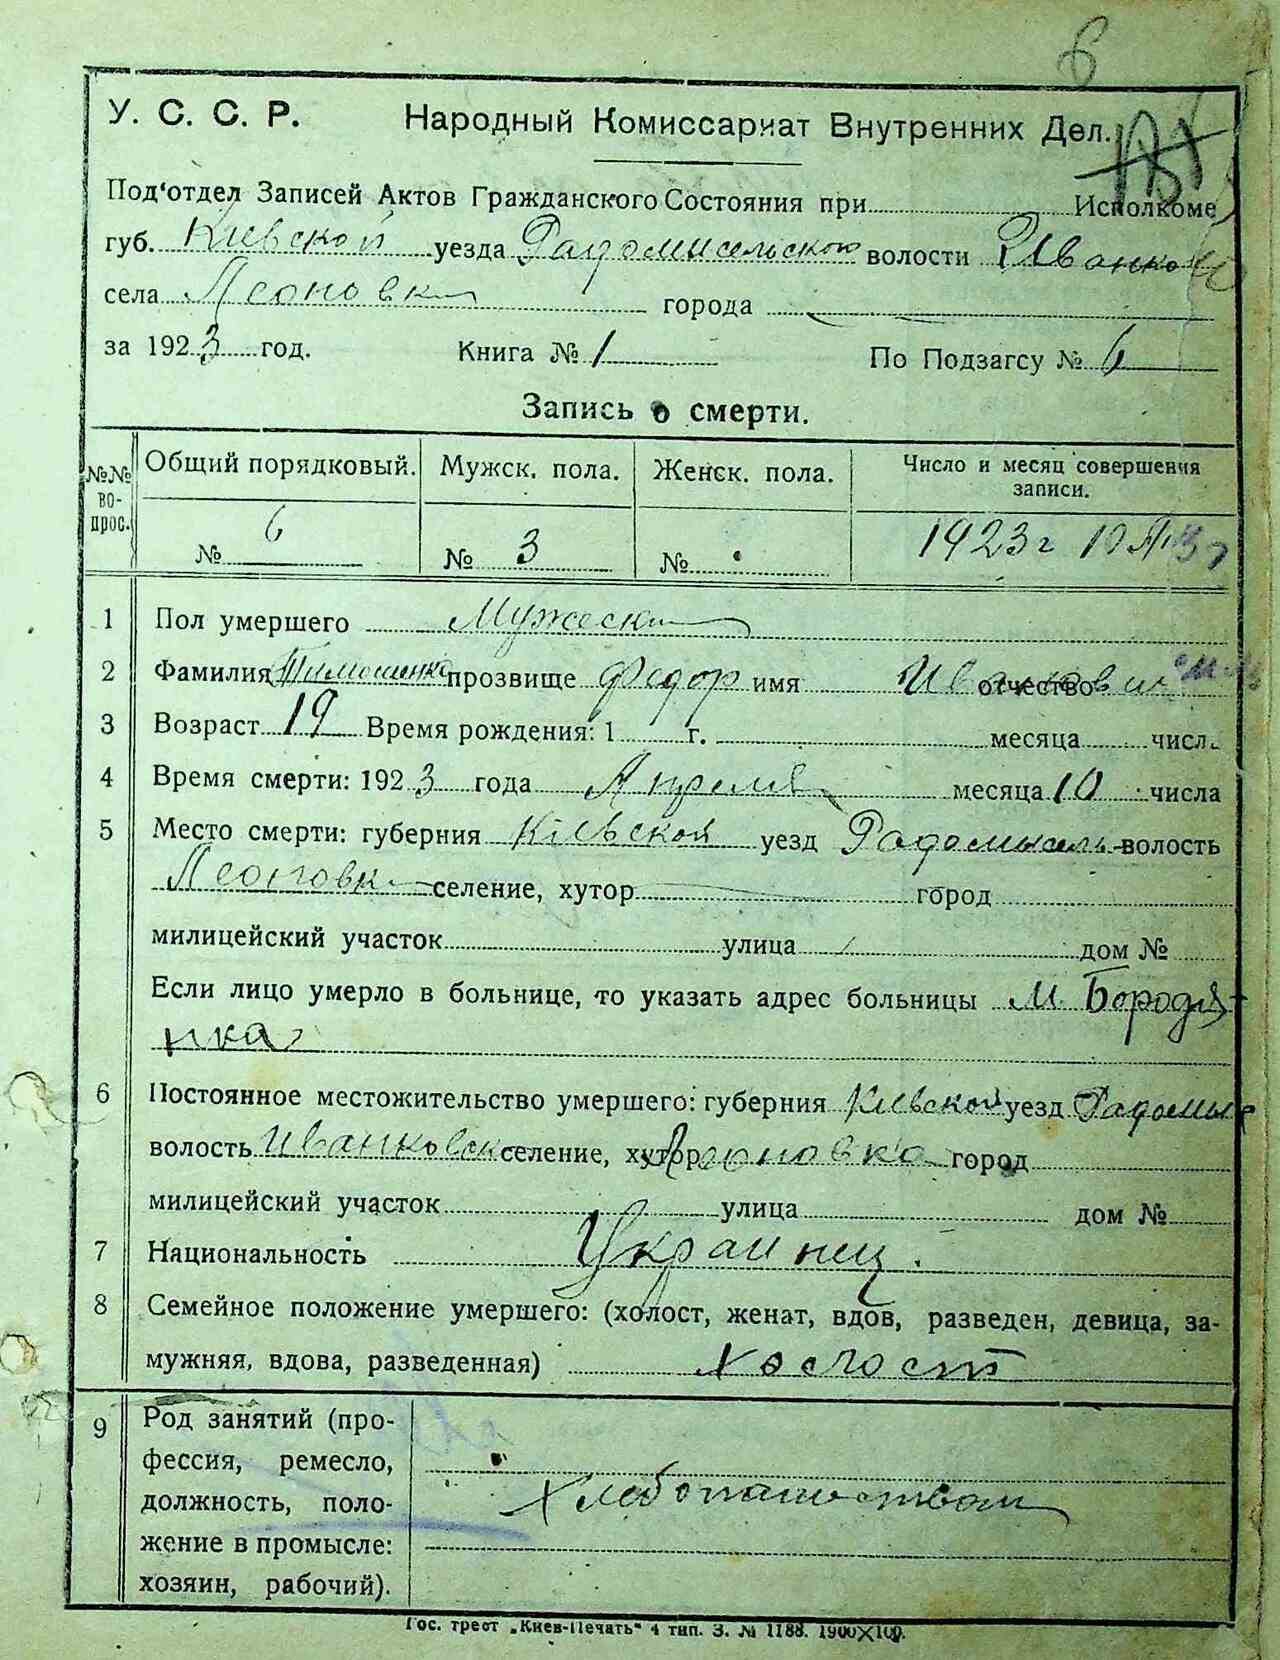 6
У. С. С. Р. Народный Комиссариат Внутренних Дел.
Под'отдел Записей Актов Гражданского Состояния при Исполкоме
губ. Кіевской уезда Радомисельского волости Иванков
села Леоновки города
за 1923 год. Книга № 1 По Подзагсу № 6
Запись о смерти.
№№ во-прос. Общий порядковый. Мужск. пола. Женск. пола. Число и месяц совершения записи.
№ 6 № 3 № 1923 г 10
1 Пол умершего Мужески
2 Фамилия Тимошенко прозвище Федор имя Иванович отчество
3 Возраст 19 Время рождения: 1 г. месяца числ.
4 Время смерти: 1923 года Апреля месяца 10 числа
5 Место смерти: губерния Кіевской уезд Радомысель волость
Леоновка селение, хутор город
милицейский участок улица дом №
Если лицо умерло в больнице, то указать адрес больницы М. Бородя-
нка
6 Постоянное местожительство умершего: губерния Киевской уезд Радомы
волость Иванковск селение, хутор Леоновка город
милицейский участок улица дом №
7 Национальность Украинец.
8 Семейное положение умершего: (холост, женат, вдов, разведен, девица, за-
мужняя, вдова, разведенная) холост
9 Род занятий (про-
фессия, ремесло,
должность, поло- Хлебопашеством
жение в промысле:
хозяин, рабочий).
Гос. трест „Киев-Печать“ 4 тип. З. № 1188. 1900×100.